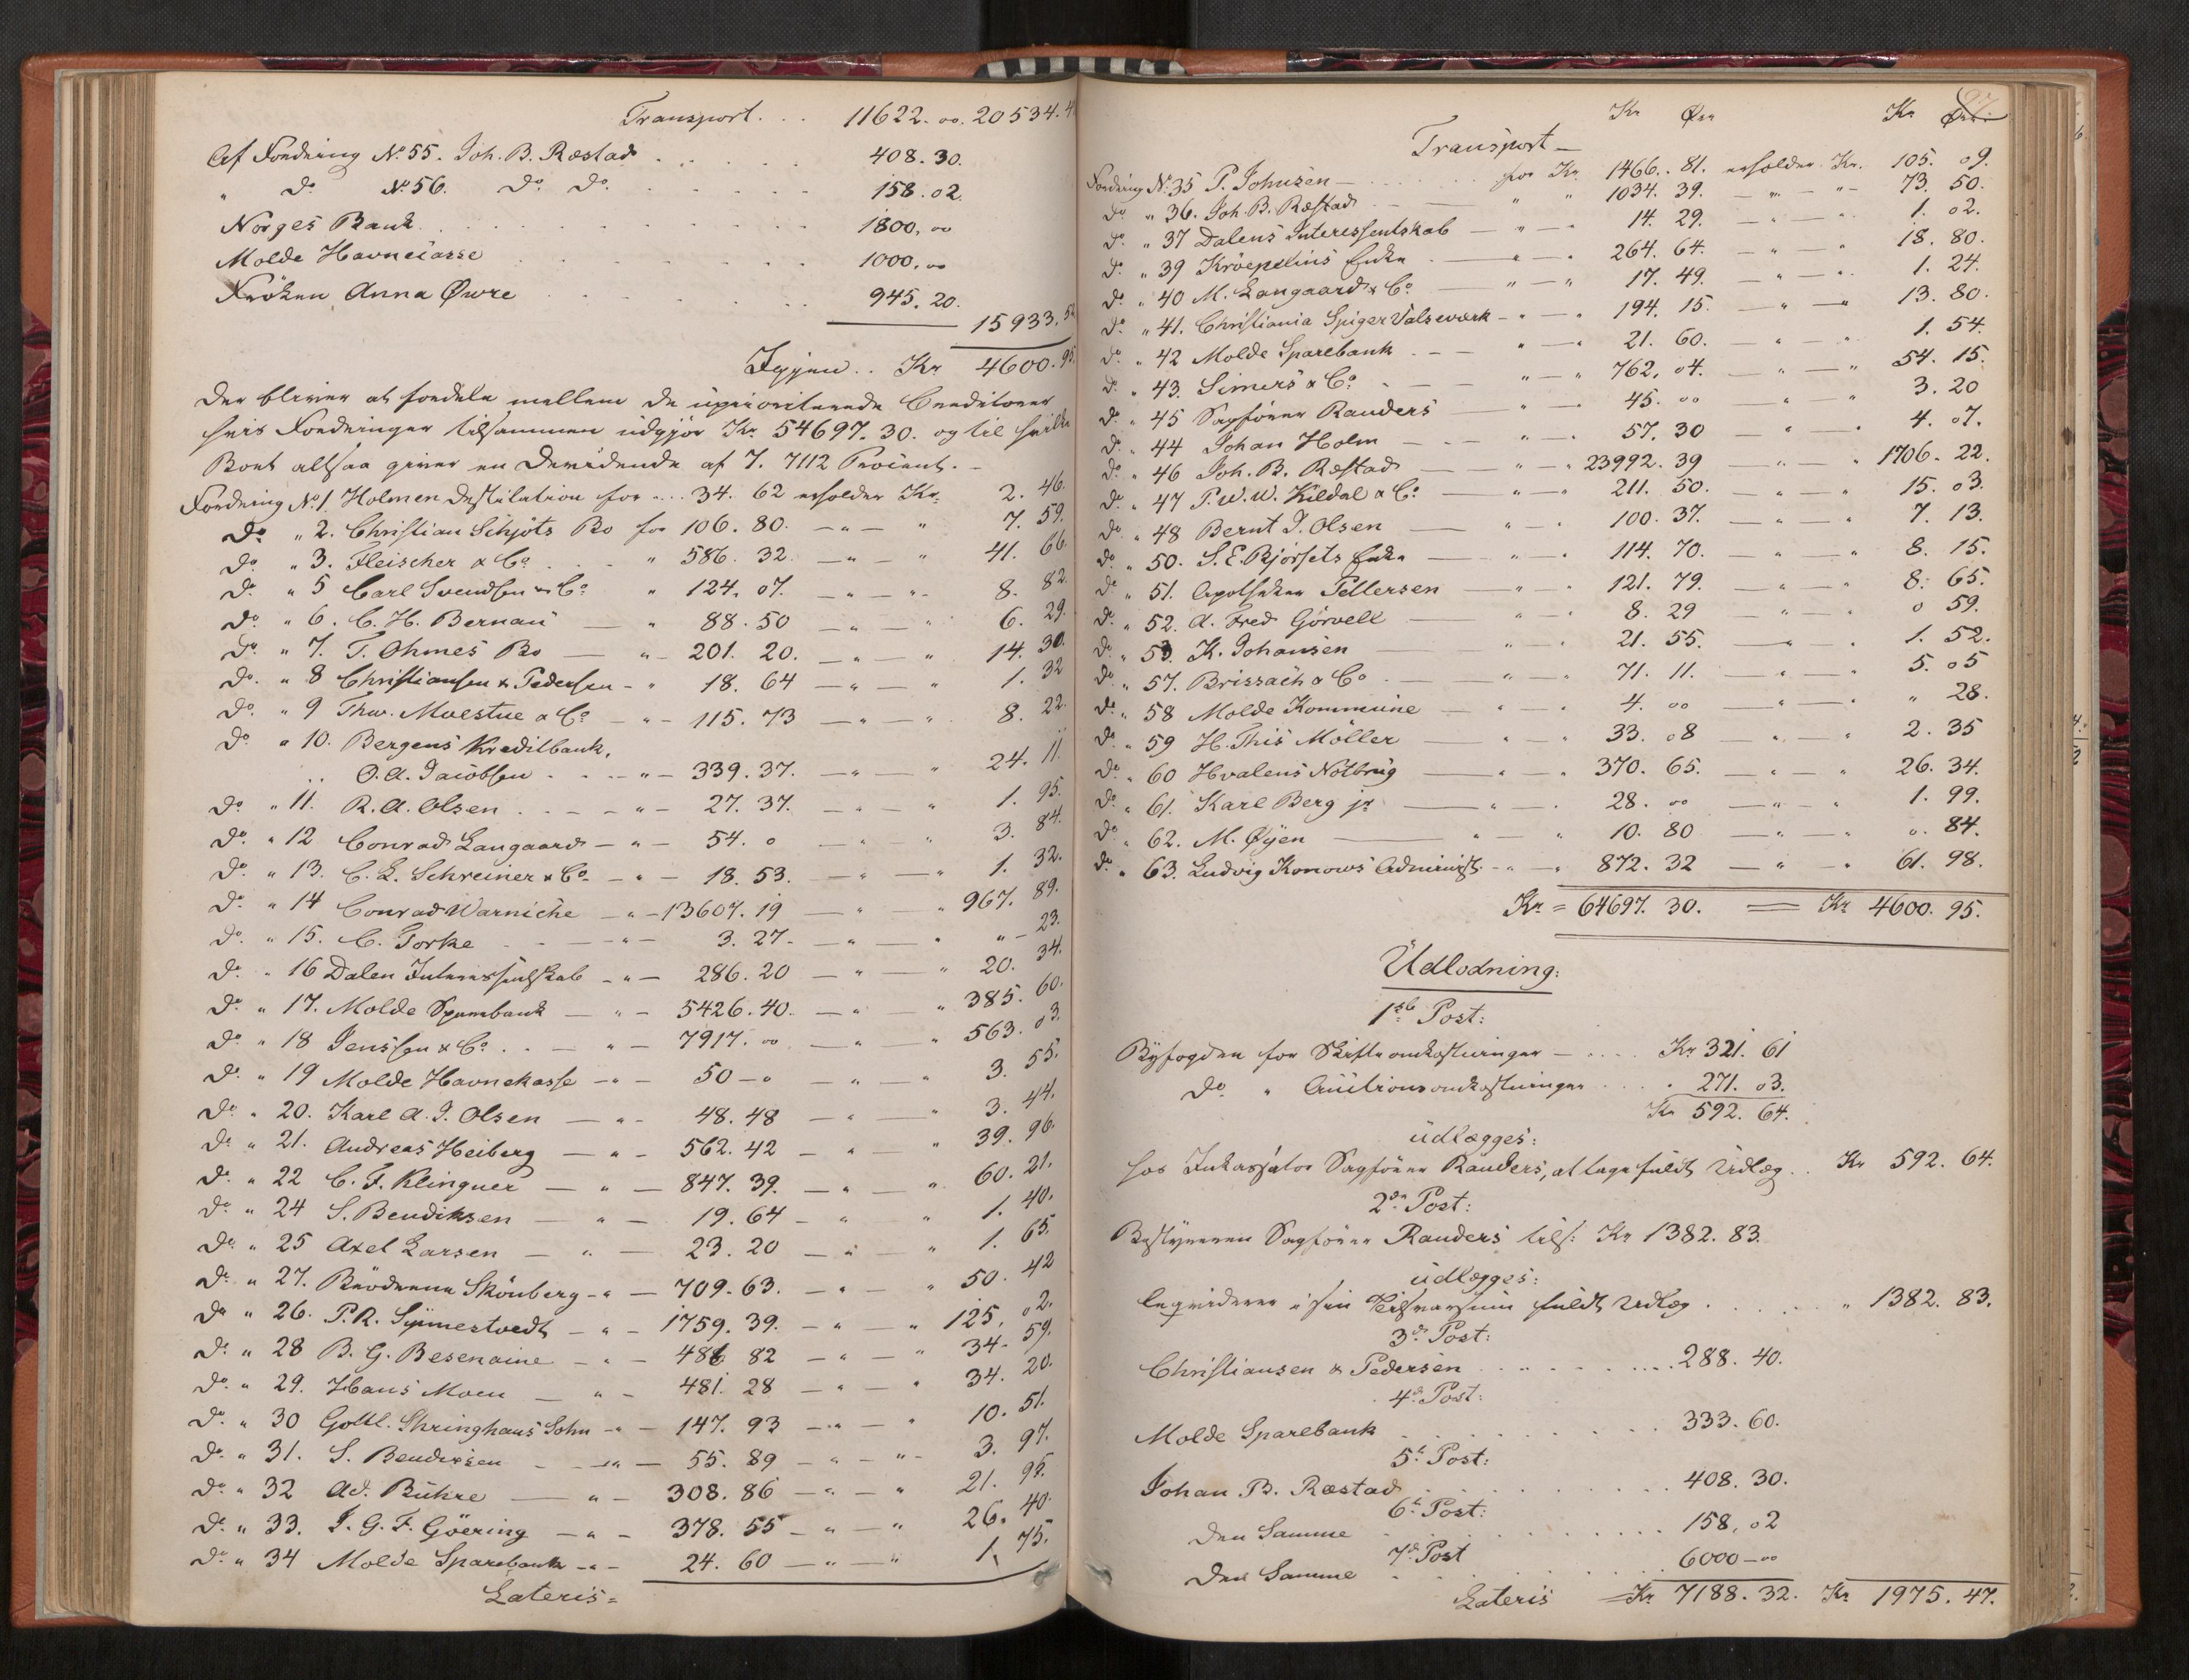 Transport. . . 11622. oo. 20534.4
Af Fordring No 55. Joh. B. Ræstad . . . . . 408. 30.
" Do No 56. Do Do . . . . . 158. 02.
Norges Bank . . . . . 1800. oo
Molde Havnecasse . . . . . 1000. oo
Frøken Anna Øwre . . . . . 945. 20.
15933. 52
Igjen . . Kr 4600. 95.
der bliver at fordele mellem de uprioriterede Creditorer
hvis Fordringer tilsammen udgjør Kr 54697. 30. og til hvilke
Boet altsaa giver en Dividende af 7. 7112 Procent. -
Fordring No 1. Holmen Destilation for - . . 34. 62 erholder Kr. 2. 46.
Do " 2. Christian Schjøts Bo for 106. 80. - " - " 7. 59.
Do " 3. Fleischer & Co . . . " 586. 32. - " - " 41. 66.
Do " 5 Carl Svendsen & Co " 124. 07. - " - " 8. 82.
Do " 6. C. H. Bernau — " 88. 50 - " - " 6. 29.
Do " 7. T. Ohmes Bo — " - 201. 20. - " - " 14. 30.
Do " 8 Christiansen & Pedersen - " 18. 64 - " - " 1. 32
Do " 9 Thw. Moestue & Co - " - 115. 73 - " - " 8. 22.
Do " 10. Bergens Kreditbank,
O. A. Jacobsen . . . - " - 339. 37. - " - " 24. 11.
Do " 11. R. A. Olsen . . - - " - 27. 37. - " " 1. 95.
Do " 12 Conrad Langaard - " - 54. o - " " 3. 84.
Do " 13. C. L. Schreiner & Co - " - 18. 53. - " - " 1. 32.
Do " 14 Conrad Warniche - " - 13607. 19 - " " 967. 89.
Do " 15. C. Torke - - - " - 3. 27 - - " - " " - 23.
Do " 16 Dalen Interessentskab - " - 286. 20 - " - " 20. 34.
Do " 17. Molde Sparebank - " - 5426. 40. - " " 385. 60.
Do " 18 Jenssen & Co . . - " - 7917. oo - " " 563. 03.
Do " 19 Molde Havnekasse - " - 50 - o - " - " 3. 55.
Do " 20. Karl A. J. Olsen - " - 48. 48 - " " 3. 44.
Do " 21. Andreas Heiberg - " - 562. 42 - " " 39. 96.
Do " 22 C. F. Klinguer - " - 847. 39. - " - " 60. 21.
Do " 24 S. Bendiksen - " - 19. 64 - " " 1. 40.
Do " 25 Axel Larsen - " - 23. 20 - " " 1. 65.
Do " 27. Brødrene Skönberg - " - 709. 63. - " " 50. 42
Do " 26. P. R. Synnestvedt - " - 1759. 39. - " - " 125. 02.
Do " 28 B. G. Besenaine - " - 486 82 - " - " 34. 59.
Do " 29. Hans Moen - " - 481. 28 - " - " 34. 20.
Do " 30 Gottl. Shringhaus Sohn - " - 147. 93 - " - " 10. 51.
Do " 31. S. Bendixsen - - " - 55. 89 - " - " 3. 97.
Do " 32 Ad. Bühre - " - 308. 86 - " - " 21. 95.
Do " 33. J. G. F. Göering - " - 378. 55 - " - " 26. 40.
Do " 34 Molde Sparebank - " - 24. 60 - " - " 1. 75.
Lateris =
Kr Øre Kr Øre
Transport -
Fordring No 35 P. Johnsen - . . . . . . for Kr 1466. 81. erholder Kr. 105. 09.
Do " 36. Joh. B. Ræstad - - — " " 1034. 39. - " - " - 73. 50.
Do " 37 Dalens Interessentskab — " - " 14. 29. - " - " 1. 02.
Do " 39 Kröepelins Enke — " - " 264. 64. - " - " 18. 80.
Do " 40 M. Langaard & Co — " - " 17. 49. - " - " 1. 24.
Do " 41. Christiania Spiger Valseværk - " - " 194. 15. - " - " 13. 80.
Do " 42 Molde Sparebank . - - " - " 21. 60. - " - " 1. 54.
Do " 43. Simers & Co . - - " - " 762. 04. - " - " 54. 15.
Do " 45 Sagfører Randers — " - " 45. oo - " " 3. 20
Do " 44 Johan Holm - - - " - " 57. 30 - " - " 4. 07.
Do " 46 Joh. B. Ræstad — " - " 23992. 39 - " - " 1706. 22.
Do " 47 P. W. W. Kildal & Co — " - " 211. 50. - " - " 15. 03.
Do " 48 Bernt J. Olsen — " - " 100. 37. - " - " 7. 13.
Do " 50. S. E. Bjørsets Enke — " - " 114. 70. - " - " 8. 15.
Do " 51. Apotheker Pettersen — " - " 121. 79. - " - " 8. 65.
Do " 52. A. Fred Görvell — " " 8. 29 " - " o 59.
Do " 53. K. Johansen — " - " 21. 55. - " " 1. 52.
Do " 57. Brissach & Co . — " - " 71. 11. - " - " 5. 05
Do " 58 Molde Kommune — " - " 4. oo - " - " " 28.
Do " 59 H. This Möller — " - " 33. 08 " - " 2. 35
Do " 60 Hvalens Notbrug — " - " 370. 65. - " - " 26. 34.
Do " 61. Karl Berg jr — " - " 28. oo - " - " 1. 99.
Do " 62. M. Øyen — " - " 10. 80 - " - " o. 84.
Do " 63. Ludvig Konows Administ. - " - " 872. 32 - " - " 61. 98.
Kr = 64697. 30. = Kr 4600. 95.
Udlodning:
1ste Post:
Byfogden for Skifteomkostninger - . . . . Kr 321. 61
Do " Auctionsomkostninger . . . . " 271. 03.
Kr 592. 64.
udlægges:
hos Inkassator Sagfører Randers, at tage fuldt Udlæg . . Kr 592. 64.
2den Post:
Bestyreren Sagfører Randers tils: Kr 1382. 83.
udlægges:
fuldt Udlæg . . . . . " 1382. 83.
3de Post:
Christiansen & Pedersen . . . . . 288. 40.
4de Post:
Molde Sparebank . . . . . 333. 60.
5te Post:
Johan B. Ræstad . . . . . 408. 30.
6te Post:
Den Samme . . . . . 158. 02
7de Post
Den Samme . . . . . 6000 - oo
Lateris Kr 7188. 32. Kr 1975. 47.